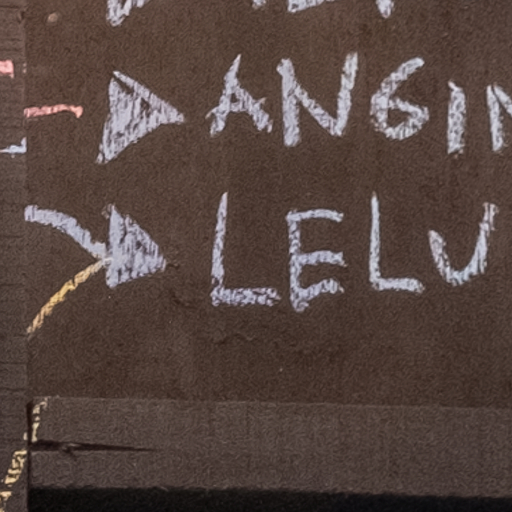 ANGIN
LELU